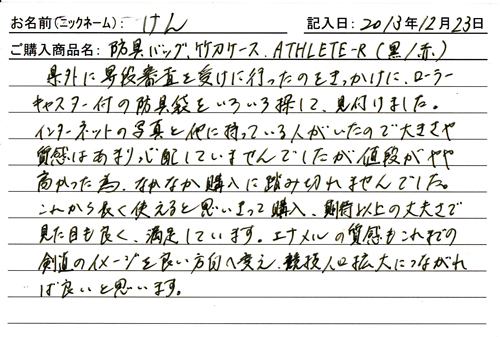 お名前(ニックネーム): けん 記入日: 2013年12月23日
ご購入商品名: 防具バッグ、竹刀ケース、ATHLETE-R(黒/赤)
県外に昇段審査を受けに行ったのをきっかけに、ローラー
キャスター付の防具袋をいろいろ探して、見付けました。
インターネットの写真と他に持っている人がいたので大きさや
質感はあまり心配していませんでしたが値段がやや
高かった為、なかなか購入に踏み切れませんでした。
これから長く使えると思いきって購入、期待以上の丈夫さで
見た目も良く、満足しています。エナメルの質感もこれまでの
剣道のイメージを良い方向へ変え、競技人口拡大につながれ
ば良いと思います。